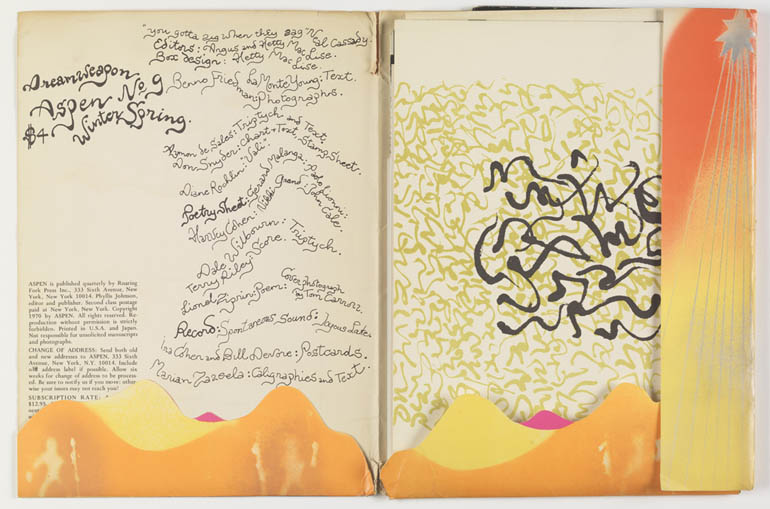 "you gotta zig when they zag" N
eal Cassady.
Editors: Angus and Hetty MacLise.
Box design: Hetty Mac
Lise.
Dreamweapon
Aspen No 9
Winter Spring.
$4
Benno Fried
man: Photographs.
LaMonte Young: Text.
Aymon de Sales: Triptych and Text.
Don Snyder: Chart + Text, Stamp Sheet.
Diane Rochlin: "Vali"
Poetry Sheet: Gerard Malanga.
Harvey Cohen:
John Cale.
Dale Wilbourn: Triptych.
Terry Riley: Score.
Cover photograph
by Tom Carrorr.
Lionel Ziprin: Poem:
Record: Spontaneous Sound:
Ira Cohen and Bill Devore: Postcards.
Marian Zazeela: Caligraphies and Text.
ASPEN is published quarterly by Roaring
Fork Press Inc., 333 Sixth Avenue, New
York, New York 10014. Phyllis Johnson,
editor and publisher. Second class postage
paid at New York, New York. Copyright
1970 by ASPEN. All rights reserved. Re-
production without permission is strictly
forbidden. Printed in U.S.A. and Japan.
Not responsible for unsolicited manuscripts
and photographs.
CHANGE OF ADDRESS: Send both old
and new addresses to ASPEN, 333 Sixth
Avenue, New York, N.Y. 10014. Include
old address label if possible. Allow six
weeks for change of address to be process-
ed. Be sure to notify us if you move: other-
wise your issues may not reach you!
SUBSCRIPTION RATE:
$12.95